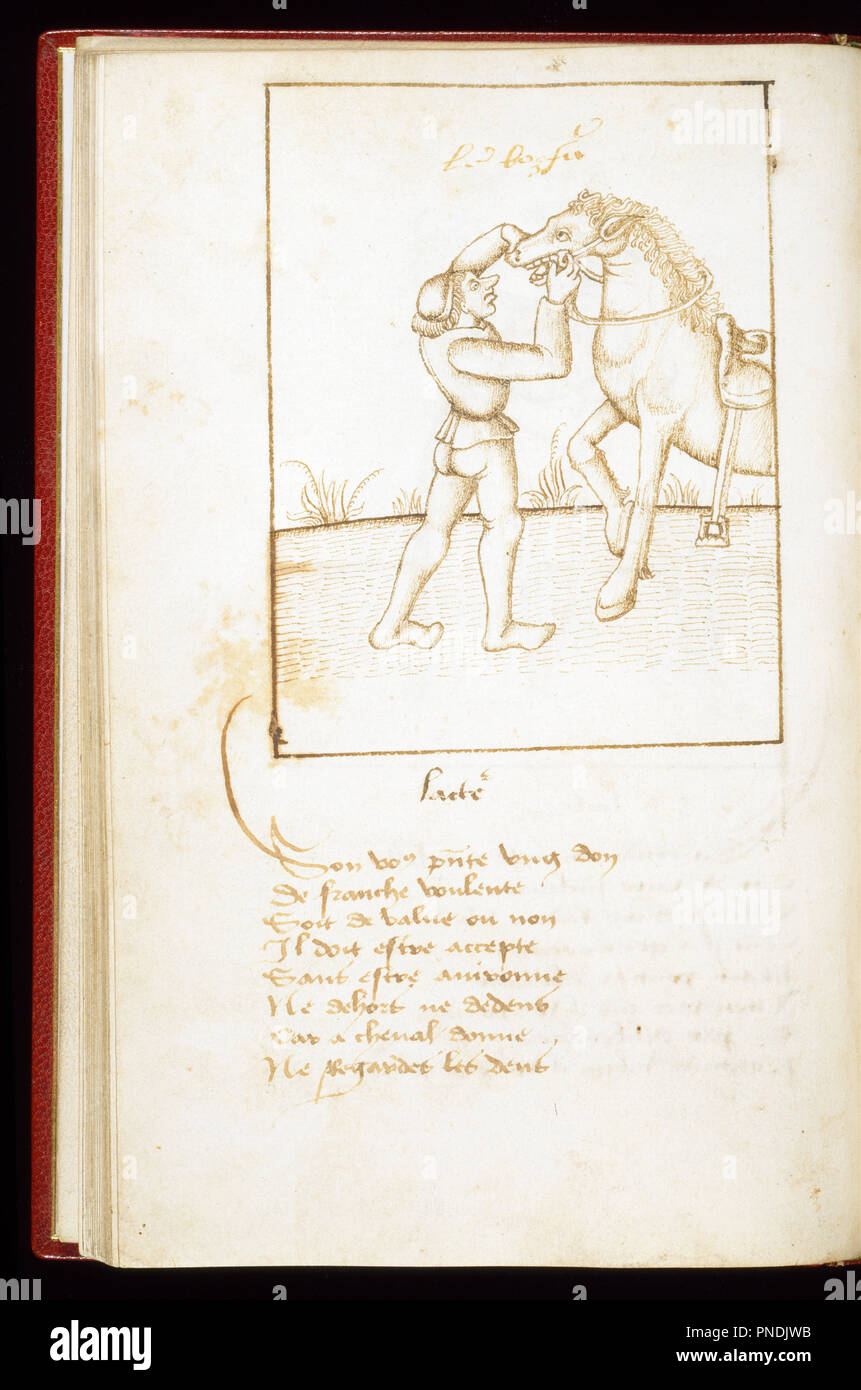 lacte
Son vo⁹ pñte vng don
De franche voulente
Soit de value ou non
Il doit estre accepte
Sans estre auironne
Ne dehors ne dedens
Car a cheual donne
Ne Regardes les dens
alamy
alamy
alamy
alamy
Image ID: PNDJWB
www.alamy.com